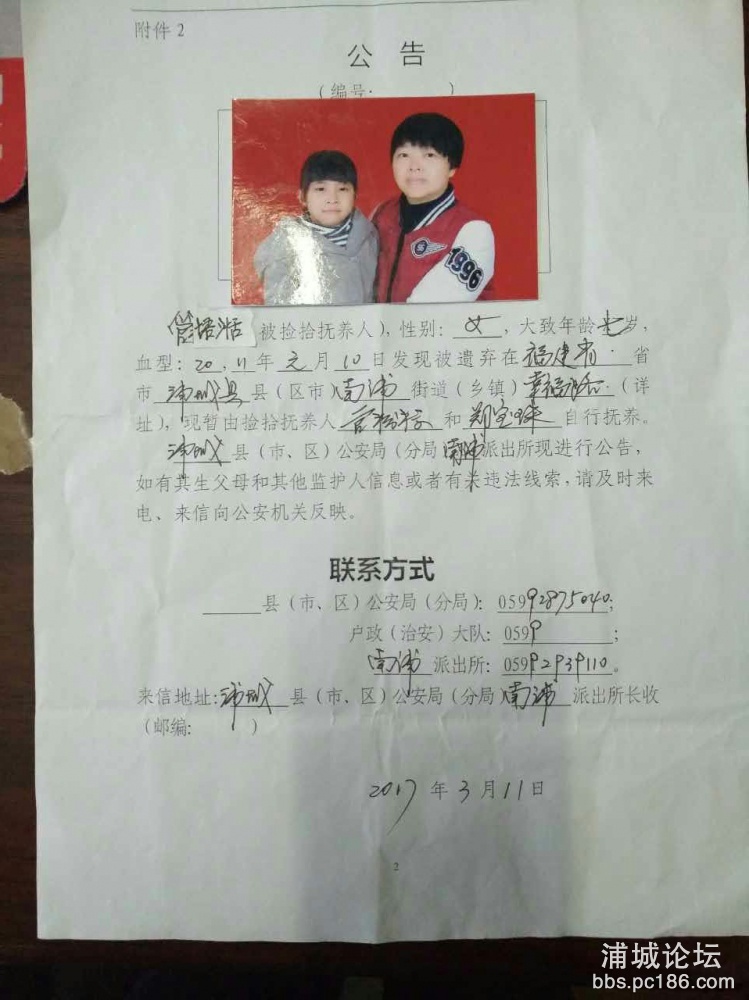 附件 2
公 告
（编号: ）
1996
管 恬 被捡拾抚养人），性别：女，大致年龄 岁，
血型：20 11年元月10日发现被遗弃在福建省 省
市浦城县县（区市）南浦街道（乡镇）幸福 （详
址），现暂由捡拾抚养人 和郑宝 自行抚养。
浦城县（市、区）公安局（分局南浦派出所现进行公告，
如有其生父母和其他监护人信息或者有关违法线索，请及时来
电、来信向公安机关反映。
联系方式
县（市、区）公安局（分局）：05992875040；
户政（治安）大队：0599；
南浦派出所：05992939110。
来信地址：浦城县（市、区）公安局（分局）南浦派出所长收
（邮编： ）
2017年3月11日
2
浦城论坛
bbs.pc186.com